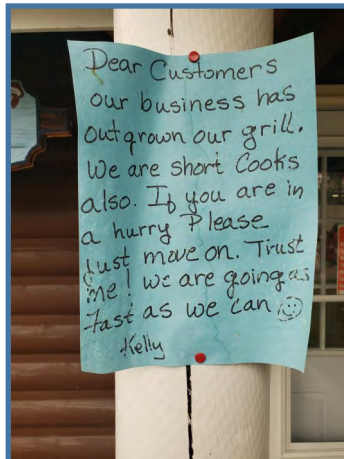 Dear Customers
our business has
outgrown our grill.
We are short Cooks
also. If you are in
a hurry Please
Just move on. Trust
me! we are going as
fast as we can ☺
Kelly